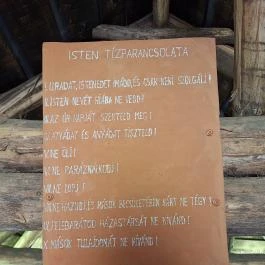 ISTEN TÍZPARANCSOLATA
I. URADAT, ISTENEDET IMÁDD, ÉS CSAK NEKI SZOLGÁLJ!
II. ISTEN NEVÉT HIÁBA NE VEDD!
III. AZ ÚR NAPJÁT SZENTELD MEG!
IV. ATYÁDAT ÉS ANYÁDAT TISZTELD!
V. NE ÖLJ!
VI. NE PARÁZNÁLKODJ!
VII. NE LOPJ!
VIII. NE HAZUDJ, ÉS MÁSOK BECSÜLETÉBEN KÁRT NE TÉGY!
IX. FELEBARÁTOD HÁZASTÁRSÁT NE KÍVÁND!
X. MÁSOK TULAJDONÁT NE KÍVÁND!